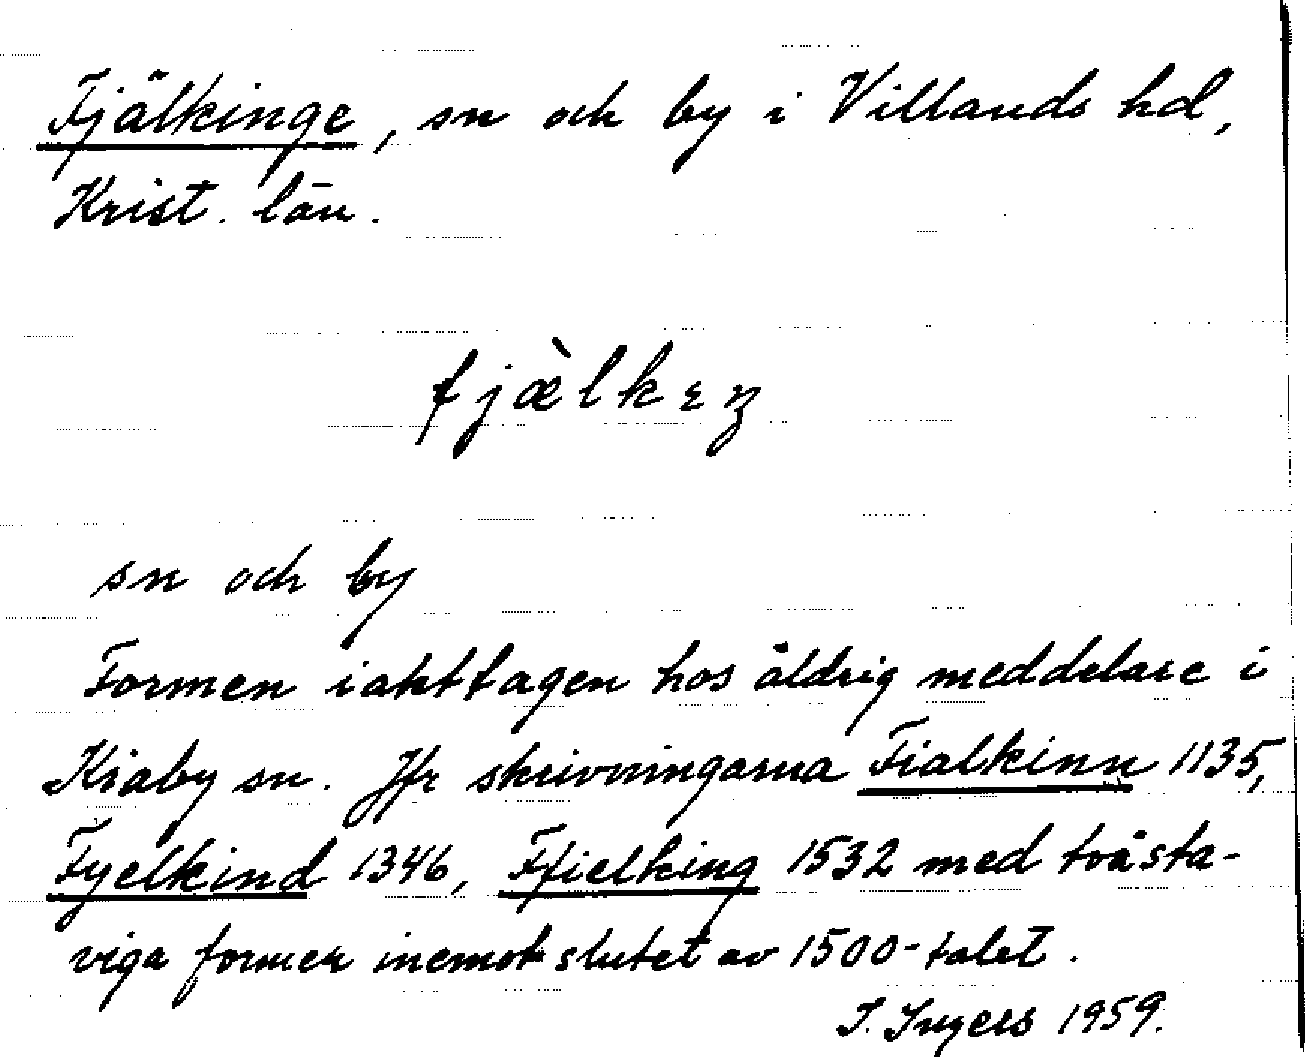 Fjälkinge, sn och by i Villands hd,
Krist. län.
fjæ̀lkɛŋ
sn och by
Formen iakttagen hos äldrig meddelare i
Kiaby sn. Jfr skrivningarna Fialkinn 1135,
Fyelkind 1346, Ffielking 1532 med tvåsta-
viga former inemot slutet av 1500-talet.
I. Ingers 1959.